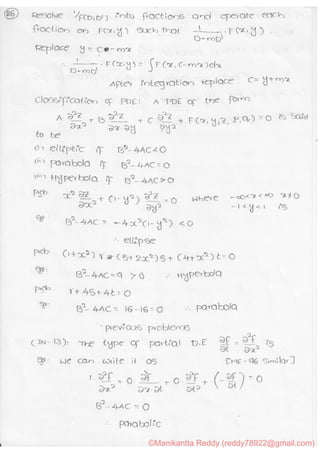 26
Resolve 1/F(D,D') into fractions and operate each
fraction on F(x,y) such that 1/(D-mD') . F(x,y).
Replace y = c-mx
∴ 1/(D-mD') . F(x,y) = ∫F(x, c-mx)dx
After integration replace c = y+mx
Classification of PDE: A PDE of the form
A ∂²z/∂x² + B ∂²z/∂x.∂y + C ∂²z/∂y² + F(x,y,z,P,Q) = 0 is said
to be
(i) elliptic if B²-4AC<0
(ii) parabola if B²-4AC=0
(iii) Hyperbola if B²-4AC>0
Prob: x² ∂²z/∂x² + (1-y²) ∂²z/∂y² = 0 where -∞<x<∞ x≠0
-1<y<1 is
Sol: B²-4AC = -4x²(1-y²) <0
∴ ellipse
Prob: (1+x²)r+(5+2x²)s+(4+x²)t=0
Sol: B²-4AC=9 >0 ∴ Hyperbola
Prob: r+4s+4t=0
Sol: B²-4AC = 16-16=0 ∴ parabola
previous problems
(IN-13): The type of partial D.E ∂f/∂t = ∂²f/∂x² is
Sol: We can write it as [ME-96 similar]
1 ∂²f/∂x² + 0 ∂²f/∂x.∂t + 0 ∂²f/∂t² + (-∂f/∂t) = 0
B²-4AC = 0
∴ parabolic
©Manikantta Reddy (reddy78922@gmail.com)